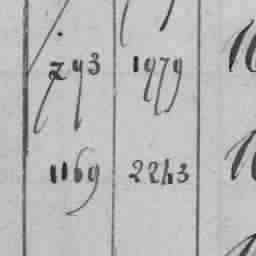 793 1979
1169 2243